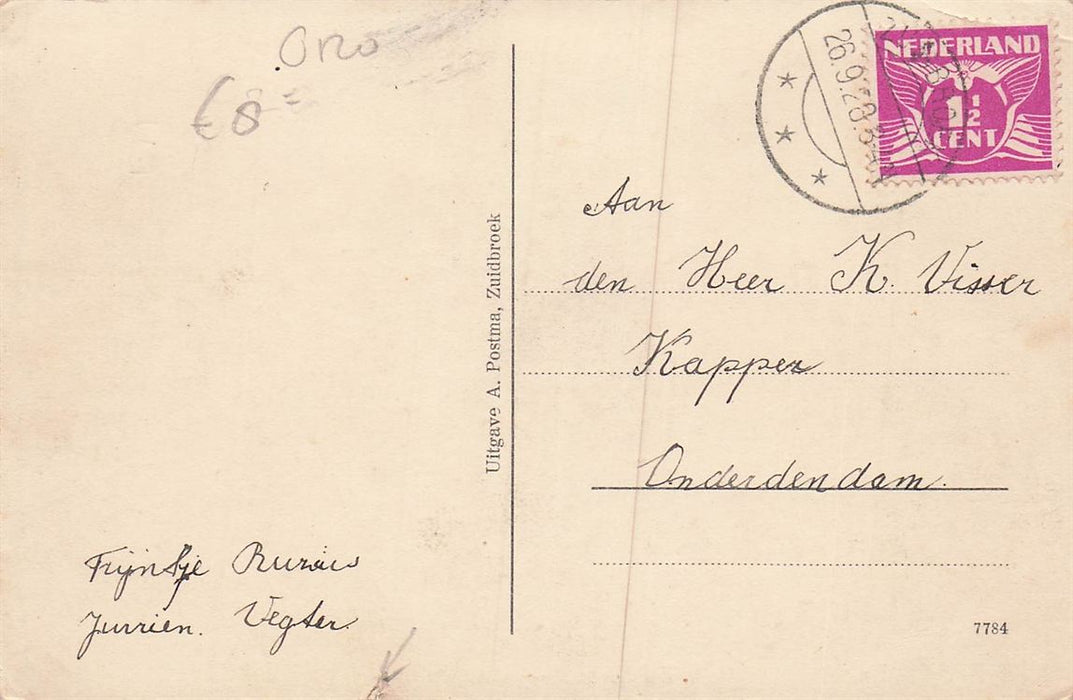 Ono
€ 8 =
26.9.28.
NEDERLAND
1½
CENT
Aan
den Heer K. Visser
Kapper
Onderdendam.
Uitgave A. Postma, Zuidbroek
Trijntje
Jurrien. Vegter.
7784